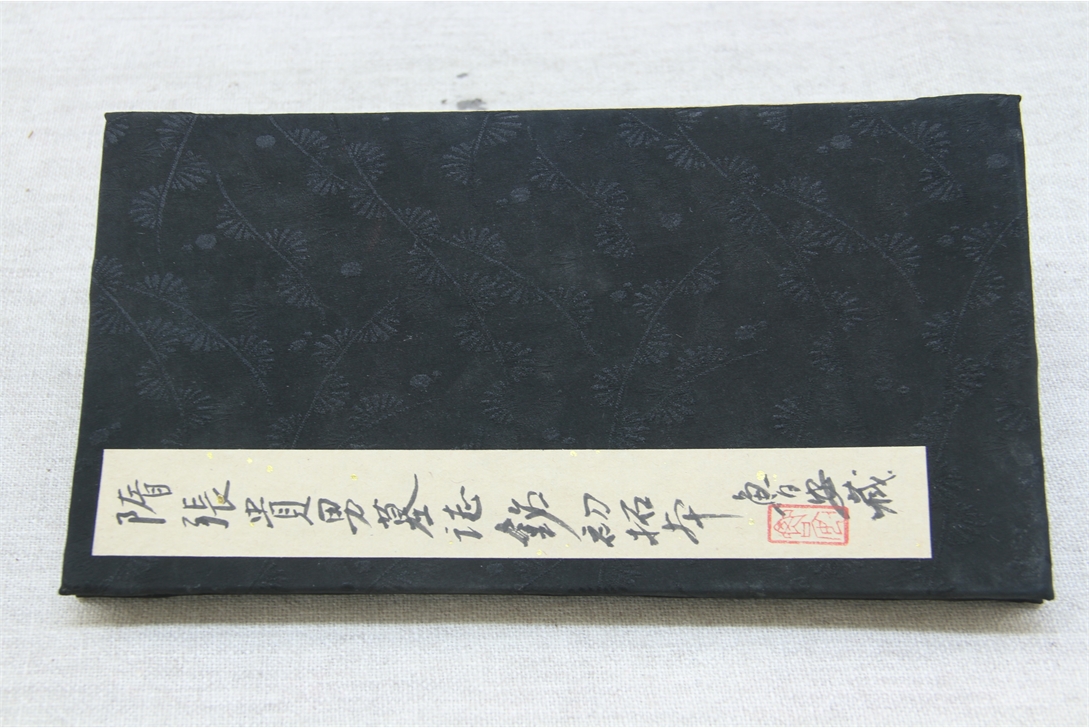 隋張貴男墓誌銘初拓本 魯 藏